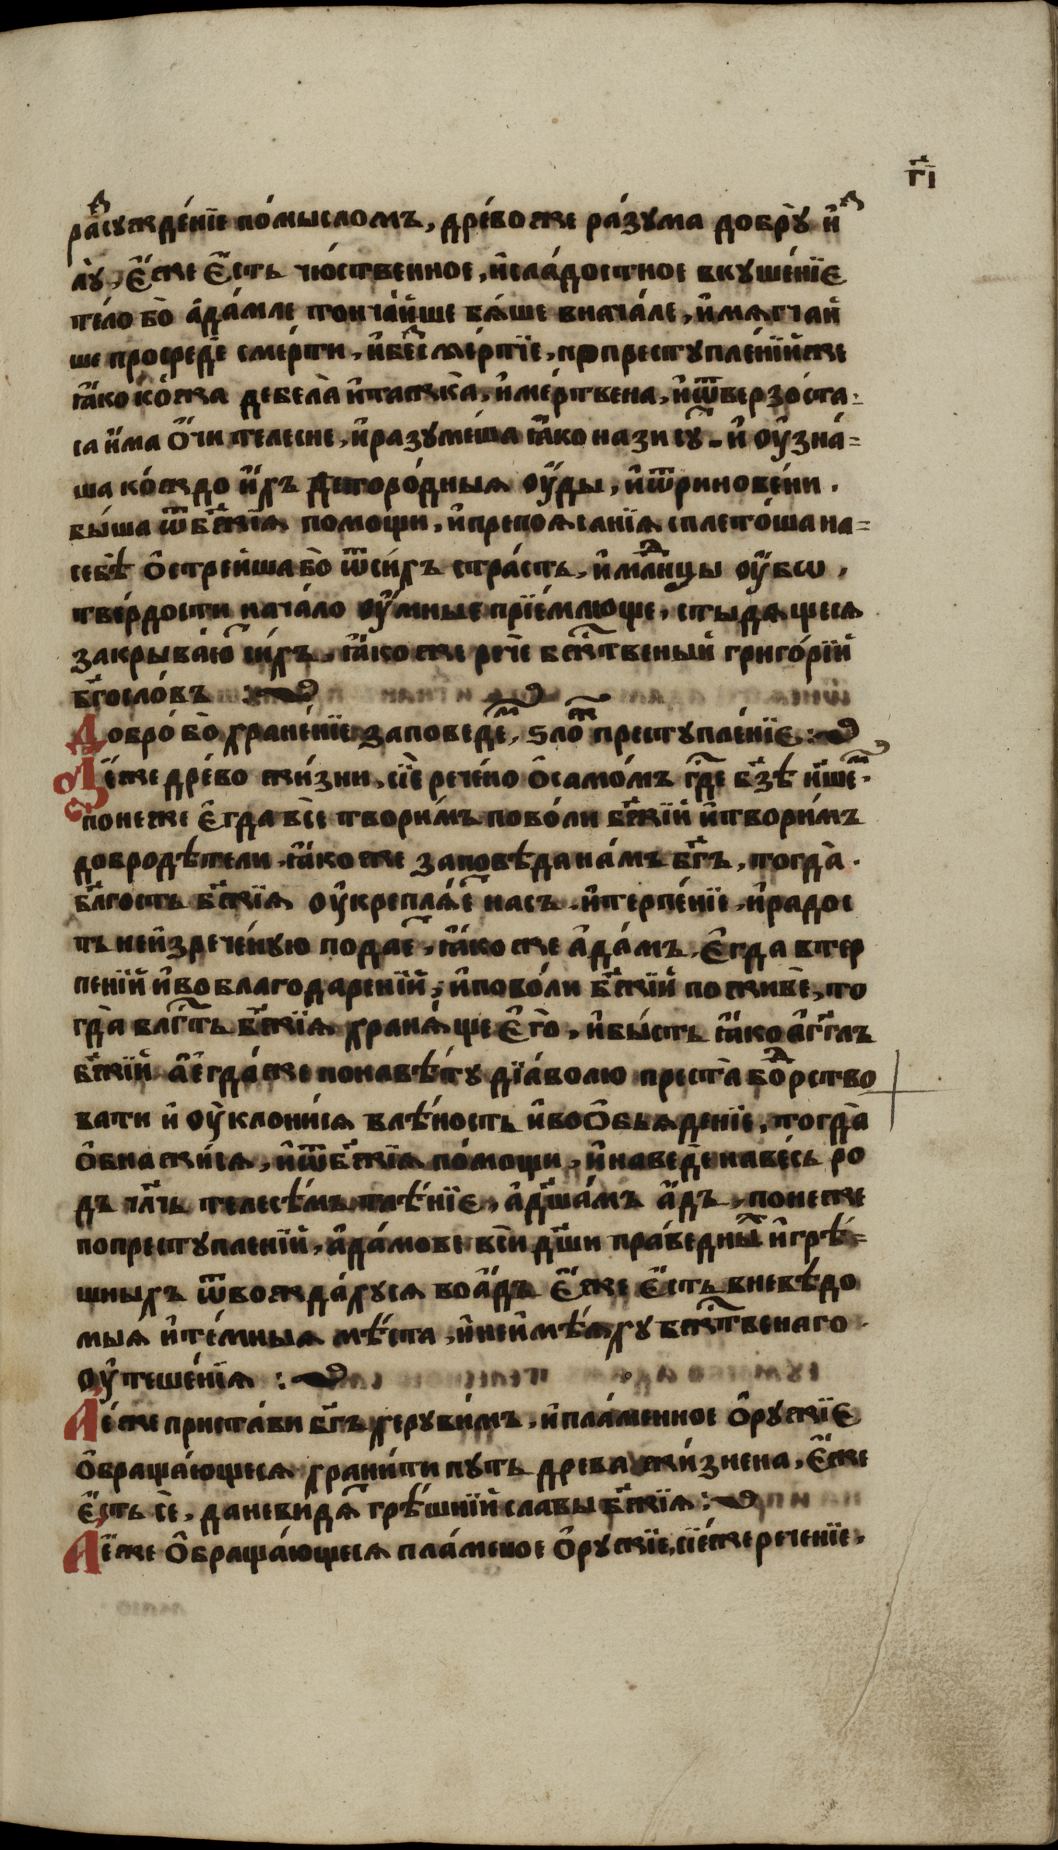 г҃і
расужде́нїе по́мысломъ, дре́во же ра́зума добрꙋ̀ и҆
лꙋ̀, є҆́же є҆́сть чю́ственное, и҆сла́достное вкуше́нїє
тѣло бо̀ а҆да́мле тонча́йше бѧ́ше внача́ле, и҆мѧгчай
ше просредѐ сме́рти, и҆бесме́ртїе, попреступле́нїи же
ꙗ҆́ко ко́жа дебела̀ и҆тѧжка̀, и҆ме́ртвена, и҆ѿверзо́ста.
са и҆́ма ѻ҆́чи телесне, и҆разуме́ша ꙗ҆́ко нази сꙋ̑. и҆ оу҆зна́=
ша ко́ждо и҆́хъ детоróдныѧ оу҆́ды, и҆ѿриновени.
бы́ша ѿбж҃їѧ по́мощи, и҆препоѧсанїѧ сплето́ша на=
себѣ̀ ѻ҆стре́йша бо̀ ѿси́хъ стра́сть, и҆мл҃нцы оу҆́бѡ,
тве́рдости нача́ло оу҆́мные прїе́млюще, стыдѧ́щесѧ
закрыва́ю си́хъ, ꙗ҆́коже речѐ бж҃твеный григо́рїй
бг҃осло́въ
Добро́ бо̀ хране́нїе заповеде, ѕло преступле́нїе:
А є҆́же дре́во жи́зни, сїѐ рече́но ѻ҆само́мъ гд҃е бз҃ѣ на́ше.
поне́же є҆гда всѐ твори́мъ пово́ли бж҃їй и҆твори́мъ
добродѣ́тели, ꙗ҆́коже заповѣда на́мъ бг҃ъ, тогда̀.
бл҃гость бж҃їѧ оу҆креплѧ́е на́съ. и҆терпе́нїе, и҆ра́дос
ть неи҆зрече́нную подае, ꙗ҆́коже а҆да́мъ, є҆гда втер
пенїй и҆во благодаре́нїй, и҆пово́ли бж҃їй поживѐ, то
гда̀ блгⷣть бж҃їѧ хранѧ́ще є҆го̀, и҆бы́сть ꙗ҆́ко а҆́гг҃лъ
бж҃їй. а҆є҆гда́же понавѣ́ту дїа́волю преста̀ бо́дрство
вати и҆ оу҆клони́сѧ влѣ́ность и҆воѻ҆бьѧде́нїе, тогда̀
ѻ҆бнажи́сѧ, и҆ѿбж҃їѧ по́мощи, и҆наведѐ наве́сь ро
дъ чл҃чь телесѣ́мъ тлѣ́нїе, а҆дш҃а́мъ а҆́дъ, поне́же
попреступле́нїй, а҆да́мове всѝ дш҃и пра́ведны и҆грѣ́=
шныхъ ѿвожда́хусѧ воа҆́дъ є҆́же є҆́сть вневѣ́до
мыѧ и҆те́мныѧ мѣ́ста, и҆неи҆мѣ́ѧху бж҃твенаго.
оу҆теше́нїѧ :
А є҆́же приста́ви бг҃ъ херуви́мъ. и҆пла́менное ѻ҆ру́жїє
ѻ҆браща́ющеесѧ храни́ти пу́ть дре́ва жи́знена, є҆́же
є҆́сть сѐ, даневи́дѧ грѣ́шнїй славы бж҃їѧ :
А є҆́же ѻ҆браща́ющеесѧ пла́меное ѻ҆ру́жїе, сїе́же рече́нїе,